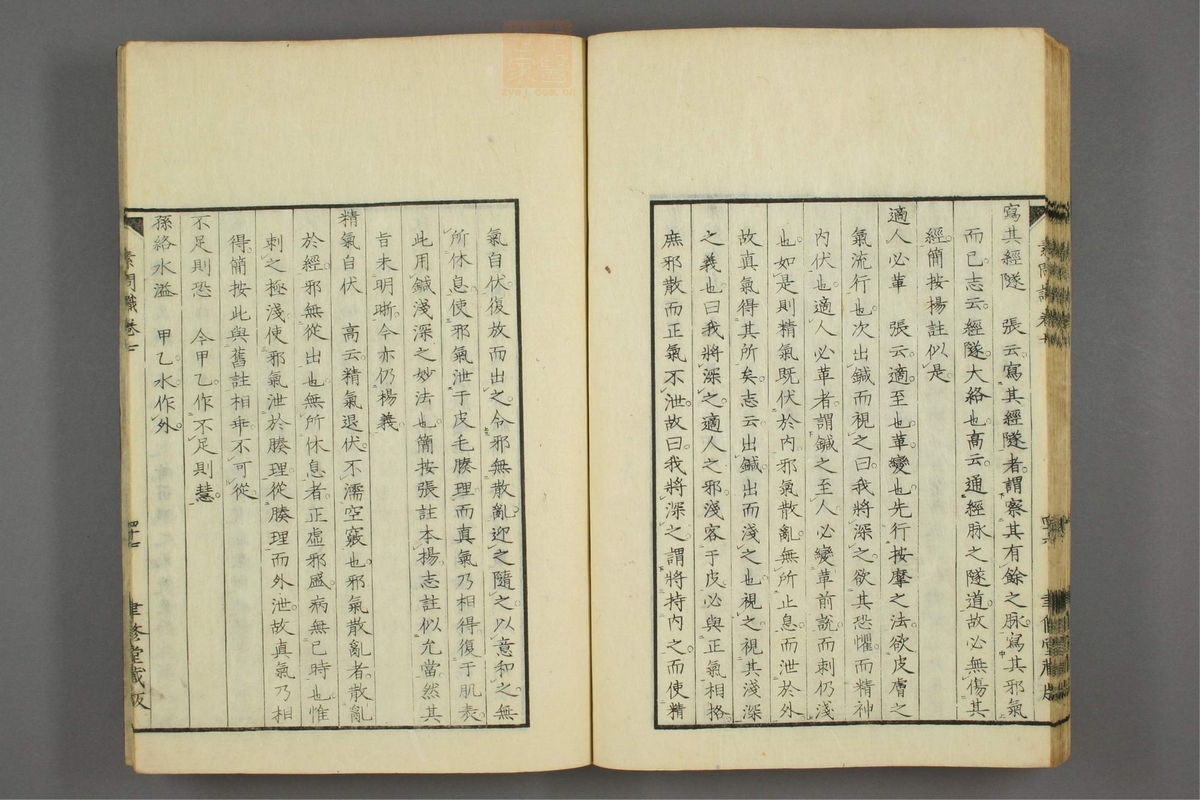 寫其經隧　張云寫其經隧者謂察其有餘之脉寫其邪氣
而已志云經隧大絡也高云通經脉之隧道故必無傷其
經簡按揚註似是
適人必革　張云適至也革變也先行按摩之法欲皮膚之
氣流行也次出鍼而視之曰我將深之欲其恐懼而精神
內伏也適人必革者謂鍼之至人必變革前說而刺仍淺
也如是則精氣既伏於內邪氣散亂無所止息而泄於外
故真氣得其所矣志云出鍼出而淺之也視之視其淺深
之義也曰我將深之適人之邪淺客于皮必與正氣相格
庶邪散而正氣不泄故曰我將深之謂將持內之而使精
氣自伏復放而出之令邪無散亂迎之隨之以意和之無
所休息使邪氣泄于皮毛腠理而真氣乃相得復于肌表
此用鍼淺深之妙法也簡按張註本楊志註似允當然其
旨未明晰今亦仍楊義
精氣自伏　高云精氣退伏不濡空竅也邪氣散亂者散亂
於經邪無從出也無所休息者正虛邪盛病無已時也惟
刺之極淺使邪氣泄於腠理從腠理而外泄故真氣乃相
得簡按此與舊註相乖不可從
不足則恐　今甲乙作不足則慧
孫絡水溢　甲乙水作外
素問識卷七
四十七
聿修堂藏版